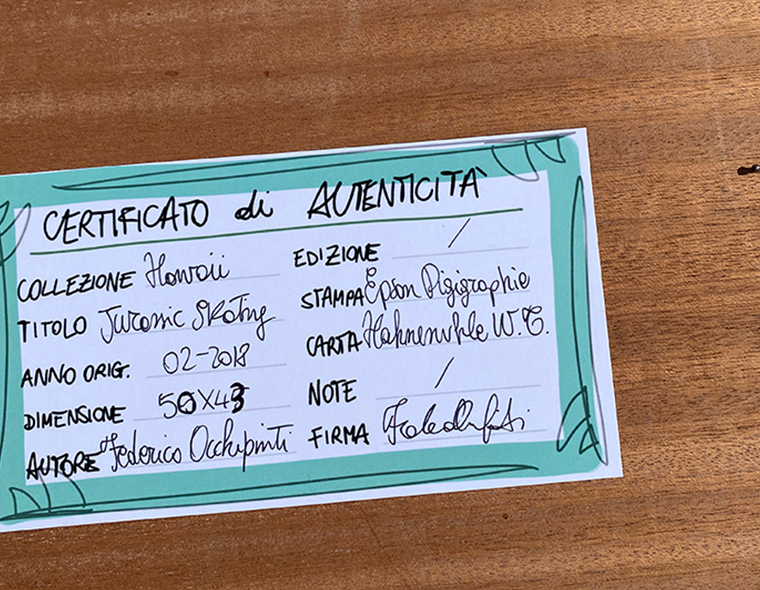 CERTIFICATO di AUTENTICITÀ
COLLEZIONE Hawaii
TITOLO Jurassic Skating
ANNO ORIG. 02-2018
DIMENSIONE 50X43
AUTORE Federico Occhipinti
EDIZIONE /
STAMPA Epson Digigraphie
CARTA Hahnemuhle W.C.
NOTE /
FIRMA